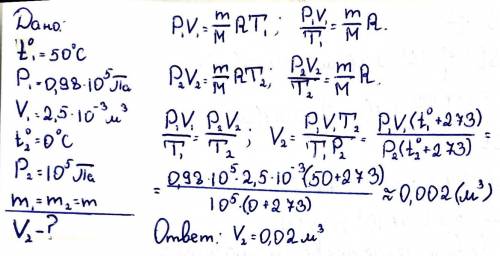 Дано:
t₁°=50°C
P₁=0,98·10⁵Па
V₁=2,5·10⁻³м³
t₂°=0°C
P₂=10⁵Па
m₁=m₂=m
V₂-?
P₁V₁=m/M RT₁; P₁V₁/T₁=m/M R.
P₂V₂=m/M RT₂; P₂V₂/T₂=m/M R.
P₁V₁/T₁=P₂V₂/T₂; V₂=P₁V₁T₂/T₁P₂=P₁V₁(t₁°+273)/P₂(t₂°+273)=
=0,98·10⁵·2,5·10⁻³(50+273)/10⁵·(0+273)≈0,002(м³)
Ответ: V₂=0,02м³